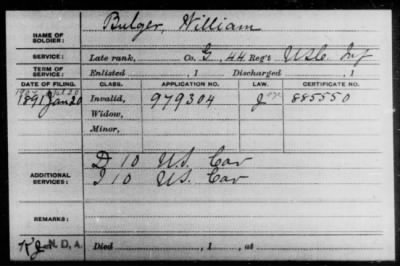 NAME OF SOLDIER: Bulger, William
SERVICE: Late rank, Co. G, 44 Reg't U.S.C. Inf
TERM OF SERVICE: Enlisted , 1 Discharged , 1
DATE OF FILING. CLASS. APPLICATION NO. LAW. CERTIFICATE NO.
1891 Jan 20 Invalid, 979304 885550
Widow,
Minor,
D 10 U.S. Cav
ADDITIONAL SERVICES: I 10 U.S. Cav
REMARKS:
N. D. A. Died , 1 , at